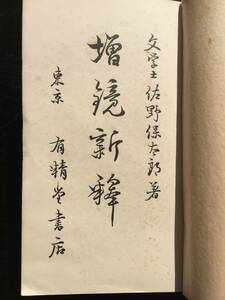 文学士 佐野保太郎著
増鏡新釋
東京 有精堂書店